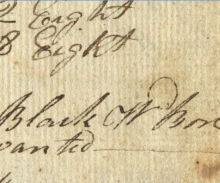 2 Eight
8 Eight
Black Wd Box
wanted